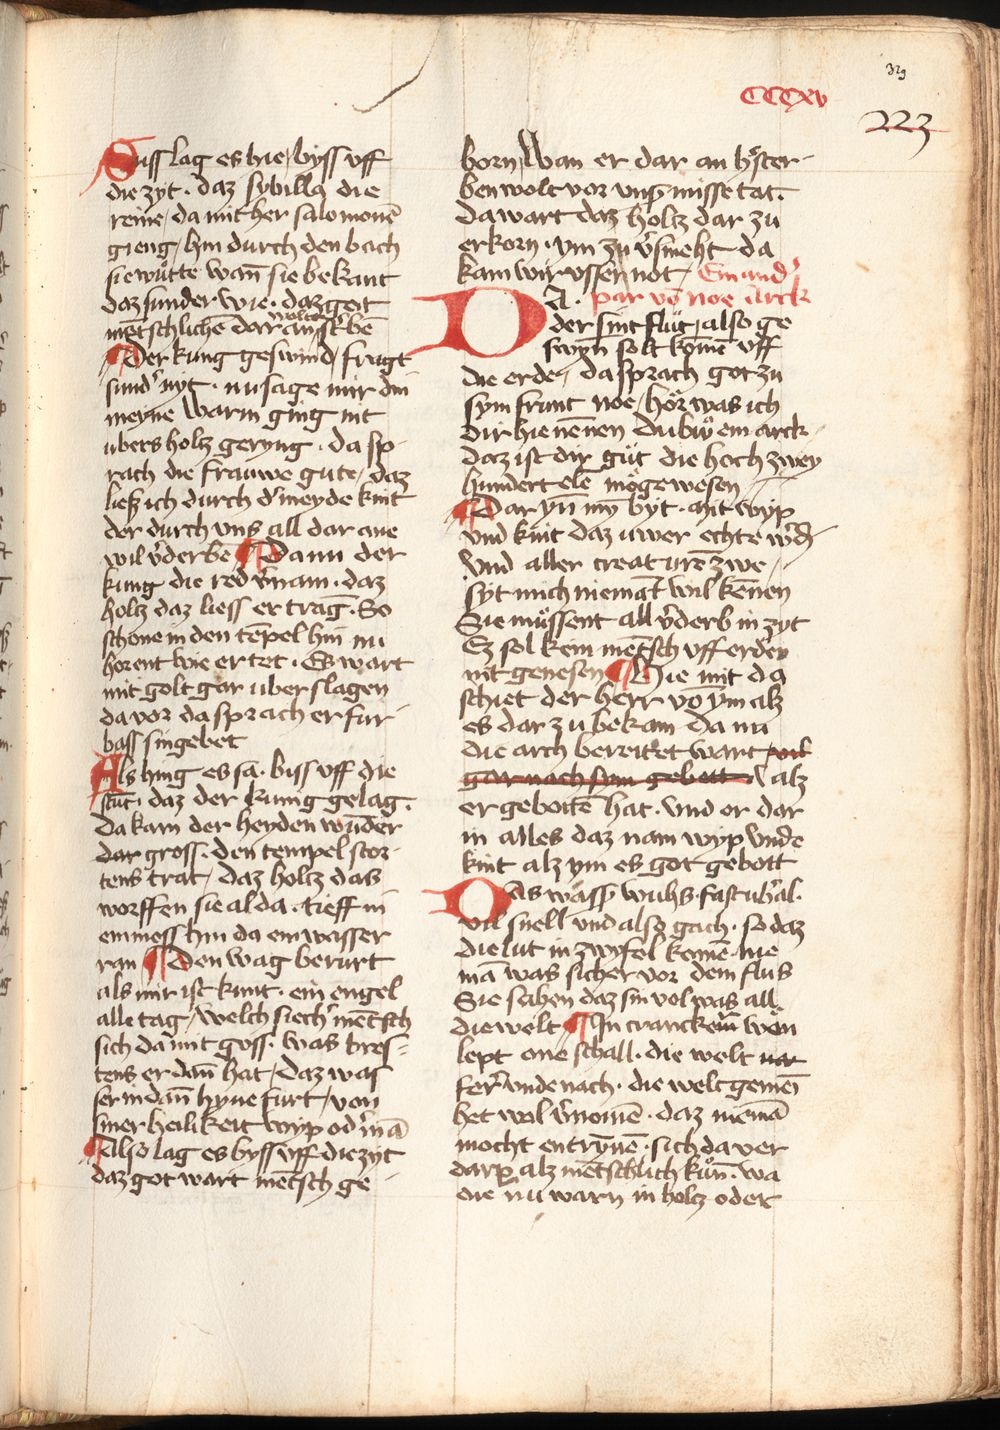 329
CCCXV
223
Suss lag es hie / byss vff
die zyt . daz sybilla die
reine / da mit her salomonē
gieng / hin durch den bach
sie wuͦtte wañ sie bekant
daz sunder wie . daz got
mētschlichē dar an wolte st'bē
Der kung geswind / fragt
sund' nyt . nu sage mir din
meyne warm ging nit
ubers holtz geryng . da sp
rach die frauwe gute / daz
liesz ich durch d' meyde kint
der durch vns all dar ane
wil v'derbē Dann der
kung die red v'nam . daz
holtz daz liess er tragē . So
schone in den tēpel hin nu
horent wie er tet . Es wart
mit golt gar uber slagen
da vor da sprach er fur
bass sin gebet
Als hing es sa . biss vff die
stūt . daz der kunig gelag .
da kam der heyden wūder
dar gross . den tempel stor
tens trat / daz holtz das
worffen sie al da . tieff in
ein mess hin da ein wasser
ran Den wag berurt
als mir ist kunt . ein engel
alle tag / welch siech' mētsch
sich da mit goss . was bres-
tens er dañ hat / daz was
ser in dañ hyne furt / von
siner heilikeit wyp od' mā
Also lag es byss vff die zyt
daz got wart mētsch ge
born / Wan er dar an hyͤ ster
ben wolt vor vnser misse tat .
da wart daz holtz dar zu
erkorn . ym zu v'smeht da
kam wir vsser not / Ein and'
par vō noe Arck
DA .
der sint fluͤt / also ge
swyn solt komē vff
die erde / da sprach got zu
sym frunt noe / hoͤr was ich
dir hie nēnen du buͦw ein arck
daz ist dir guͤt die hoch zwey
hundert ele moͤge wesen
Dar yn nym byt . ant wyp
vnd kint daz uwer echte w'd
Vnd aller creaturē zwe
syt mich niemāt wil kēnen
Sie muͤssent all v'derb in zyt
Ez sol kein mētsch vff erden
nit genesen Hie mit da
schiet der herr vō ym alz
es dar zu bekam da nu
die arch bereitet wart vil
gar nach sym gebott . alz
er gebottē hat . Vnd or dar
in alles daz nam wyp vnde
kint alz ym es got gebott
Das wasser wuhs . fast ub'al .
vil snell vnd also gach . so daz
die lut in zwyfel kemē . nie
mā was sicher vor dem flus
Sie sahen daz sin vol was all
die welt In cranckem woͤn
lept one schall . die welt nar
fer' vnde nach . die welt gemeī
het wol v'nomē . daz niemā
mocht entrynē . sich da ver
darp alz mētschlich kuͤn . wa
die nu warn in holtz oder